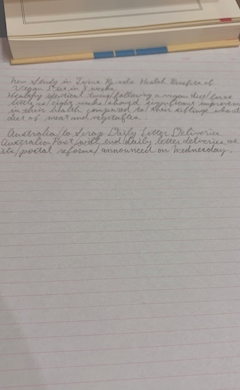 New study in Twins Reveals Health Benefits of
Vegan Diet in 8 weeks
Healthy identical twins following a vegan diet for as
little as eight weeks showed significant improvement
in their health compared to their siblings
diet of meat and vegetables.
Australia to Scrap Daily Letter Deliveries
Australia Post will end daily letter deliveries as
its postal reforms announced on Wednesday.